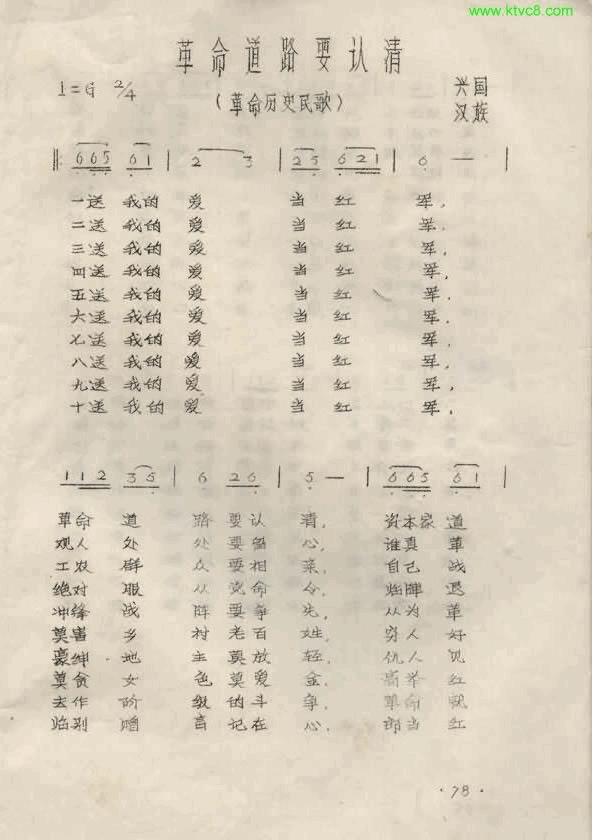 www.ktvc8.com
革命道路要认清
1=G 2/4
(革命历史民歌)
兴国
汉族
665 61 | 2 3 | 25 621 | 6 — |
一送 我的 爱 当 红 军,
二送 我的 爱 当 红 军,
三送 我的 爱 当 红 军,
四送 我的 爱 当 红 军,
五送 我的 爱 当 红 军,
六送 我的 爱 当 红 军,
七送 我的 爱 当 红 军,
八送 我的 爱 当 红 军,
九送 我的 爱 当 红 军,
十送 我的 爱 当 红 军,
112 35 | 6 26 | 5 — | 665 61 |
革命 道 路 要认 清, 资本家 道
观人 处 处 要留 心, 谁真 革
工农 群 众 要相 亲, 自己 战
绝对 服 从 党命 令, 临阵 退
冲锋 战 阵 要争 先, 从为 革
莫害 乡 村 老百 姓, 穷人 好
豪绅 地 主 莫放 轻, 仇人 见
莫贪 女 色 莫爱 金, 高举 红
去作 阶 级 的斗 争, 革命
临别 赠 言 记在 心, 郎当 红
·78·